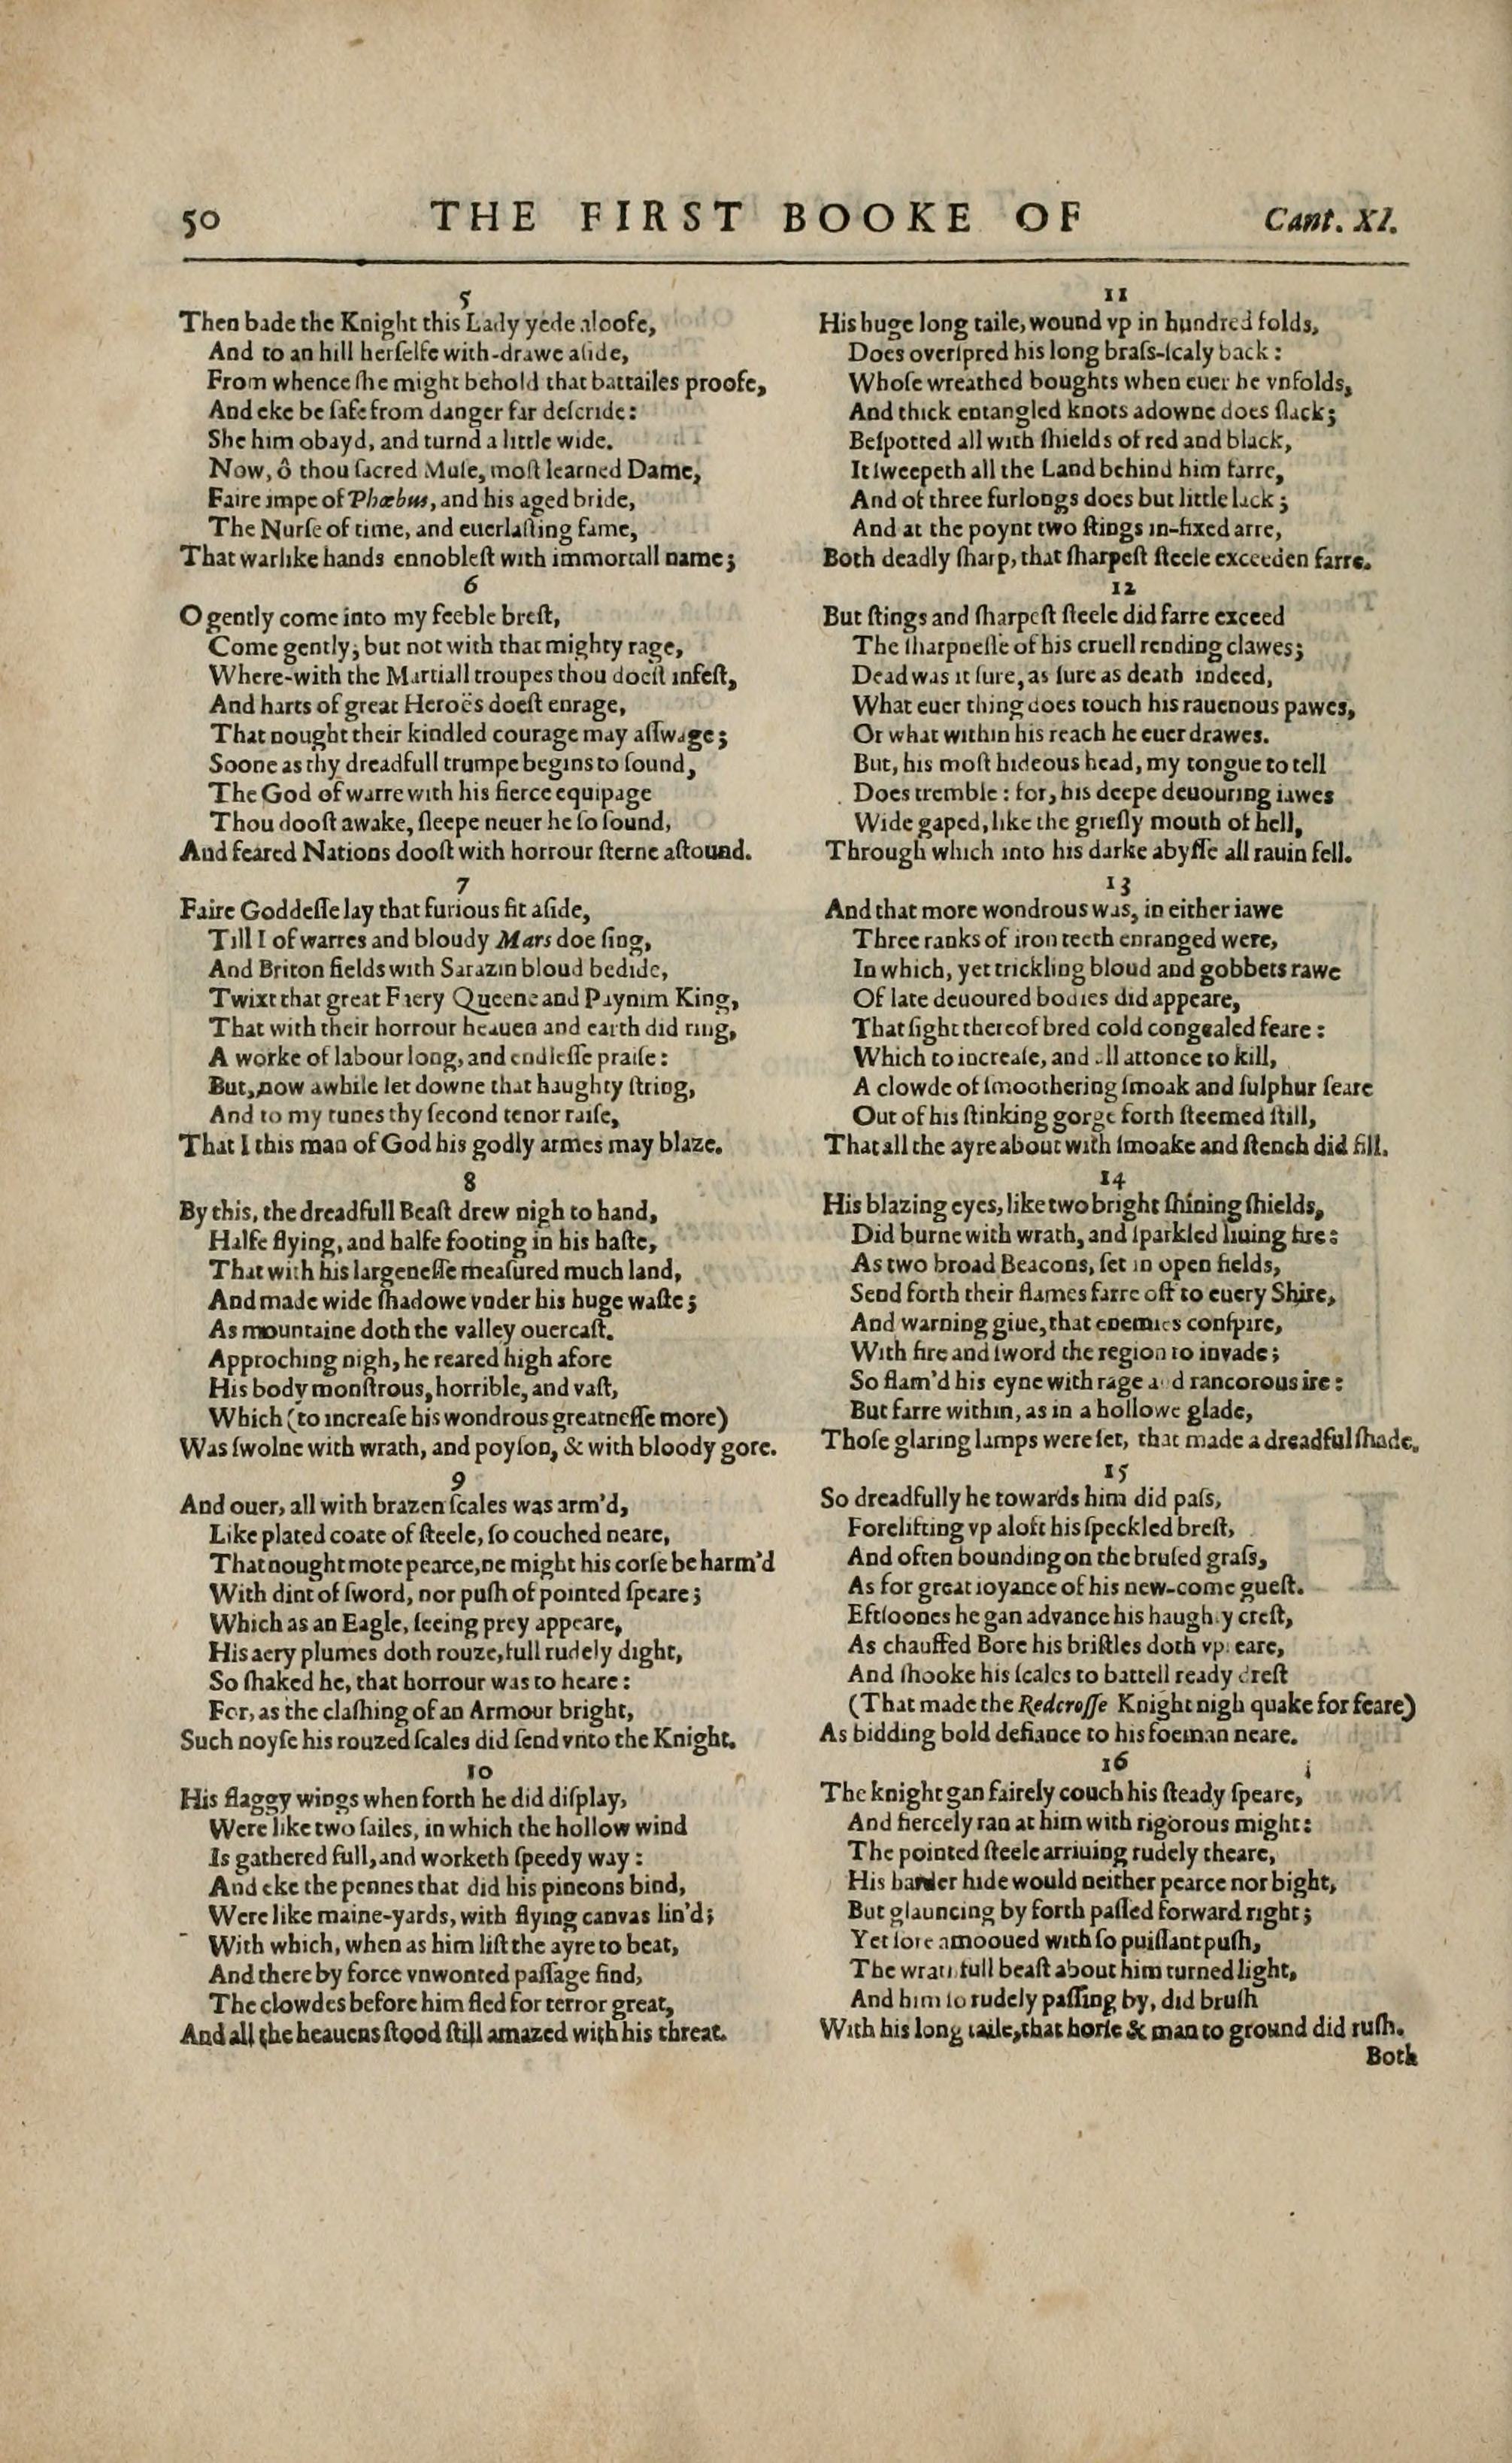 50 THE FIRST BOOKE OF Cant. XI.
5
Then bade the Knight this Lady yede aloofe,
And to an hill herſelfe with-drawe aſide,
From whence ſhe might behold that battailes proofe,
And eke be ſafe from danger far deſcride:
She him obayd, and turnd a little wide.
Now, ô thou ſacred Muſe, moſt learned Dame,
Faire impe of Phœbus, and his aged bride,
The Nurſe of time, and euerlaſting fame,
That warlike hands ennobleſt with immortall name;
6
O gently come into my feeble breſt,
Come gently; but not with that mighty rage,
Where-with the Martiall troupes thou doeſt infeſt,
And harts of great Heroës doeſt enrage,
That nought their kindled courage may aſſwage;
Soone as thy dreadfull trumpe begins to ſound,
The God of warre with his fierce equipage
Thou dooſt awake, ſleepe neuer he ſo ſound,
And feared Nations dooſt with horrour ſterne aſtound.
7
Faire Goddeſſe lay that furious fit aſide,
Till I of warres and bloudy Mars doe ſing,
And Briton fields with Sarazin bloud bedide,
Twixt that great Faery Queene and Paynim King,
That with their horrour heauen and earth did ring,
A worke of labour long, and endleſſe praiſe:
But, now awhile let downe that haughty ſtring,
And to my tunes thy ſecond tenor raiſe,
That I this man of God his godly armes may blaze.
8
By this, the dreadfull Beaſt drew nigh to hand,
Halfe flying, and halfe footing in his haſte,
That with his largeneſſe meaſured much land,
And made wide ſhadowe vnder his huge waſte;
As mountaine doth the valley ouercaſt.
Approching nigh, he reared high afore
His body monſtrous, horrible, and vaſt,
Which (to increaſe his wondrous greatneſſe more)
Was ſwolne with wrath, and poyſon, & with bloody gore.
9
And ouer, all with brazen ſcales was arm'd,
Like plated coate of ſteele, ſo couched neare,
That nought mote pearce, ne might his corſe be harm'd
With dint of ſword, nor puſh of pointed ſpeare;
Which as an Eagle, ſeeing prey appeare,
His aery plumes doth rouze, full rudely dight,
So ſhaked he, that horrour was to heare:
For, as the claſhing of an Armour bright,
Such noyſe his rouzed ſcales did ſend vnto the Knight.
10
His flaggy wings when forth he did diſplay,
Were like two ſailes, in which the hollow wind
Is gathered full, and worketh ſpeedy way:
And eke the pennes that did his pineons bind,
Were like maine-yards, with flying canvas lin'd;
With which, when as him liſt the ayre to beat,
And there by force vnwonted paſſage find,
The clowdes before him fled for terror great,
And all the heauens ſtood ſtill amazed with his threat.
11
His huge long taile, wound vp in hundred folds,
Does overſpred his long braſs-ſcaly back:
Whoſe wreathed boughts when euer he vnfolds,
And thick entangled knots adowne does ſlack;
Beſpotted all with ſhields of red and black,
It ſweepeth all the Land behind him farre,
And of three furlongs does but little lack;
And at the poynt two ſtings in-fixed arre,
Both deadly ſharp, that ſharpeſt ſteele exceeden farre.
12
But ſtings and ſharpeſt ſteele did farre exceed
The ſharpneſſe of his cruell rending clawes;
Dead was it ſure, as ſure as death indeed,
What euer thing does touch his rauenous pawes,
Or what within his reach he euer drawes.
But, his moſt hideous head, my tongue to tell
Does tremble: for, his deepe deuouring iawes
Wide gaped, like the grieſly mouth of hell,
Through which into his darke abyſſe all rauin fell.
13
And that more wondrous was, in either iawe
Three ranks of iron teeth enranged were,
In which, yet trickling bloud and gobbets rawe
Of late deuoured bodies did appeare,
That ſight thereof bred cold congealed feare:
Which to increaſe, and all attonce to kill,
A clowde of ſmoothering ſmoak and ſulphur ſeare
Out of his ſtinking gorge forth ſteemed ſtill,
That all the ayre about with ſmoake and ſtench did fill.
14
His blazing eyes, like two bright ſhining ſhields,
Did burne with wrath, and ſparkled liuing fire:
As two broad Beacons, ſet in open fields,
Send forth their flames farre off to euery Shire,
And warning giue, that enemies conſpire,
With fire and ſword the region to invade;
So flam'd his eyne with rage and rancorous ire:
But farre within, as in a hollowe glade,
Thoſe glaring lamps were ſet, that made a dreadful ſhade.
15
So dreadfully he towards him did paſs,
Forelifting vp aloft his ſpeckled breſt,
And often bounding on the bruſed graſs,
As for great ioyance of his new-come gueſt.
Eftſoones he gan advance his haughty creſt,
As chauffed Bore his briſtles doth vpreare,
And ſhooke his ſcales to battell ready dreſt
(That made the Redcroſſe Knight nigh quake for feare)
As bidding bold defiance to his foeman neare.
16
The knight gan fairely couch his ſteady ſpeare,
And fiercely ran at him with rigorous might:
The pointed ſteele arriuing rudely theare,
His harder hide would neither pearce nor bight,
But glauncing by forth paſſed forward right;
Yet ſore amooued with ſo puiſſant puſh,
The wrathfull beaſt about him turned light,
And him ſo rudely paſſing by, did bruſh
With his long taile, that horſe & man to ground did ruſh.
Both